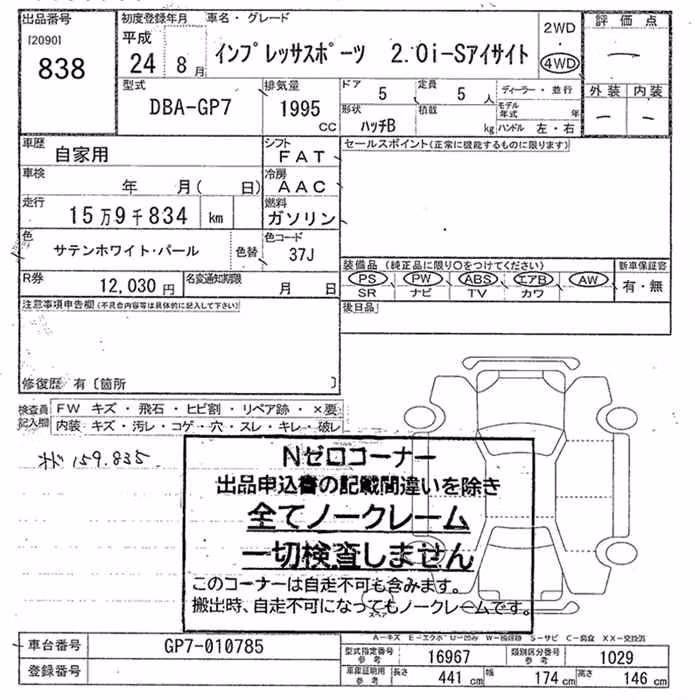 出品番号 初度登録年月 車名・グレード 評価点
[2090] 平成 2WD
838 24 8月 インプレッサスポーツ 2.0i-Sアイサイト 4WD —
型式 排気量 ドア 定員 ディーラー・並行 外装 内装
DBA-GP7 1995 CC 5 5人 モデル年式 年 — —
形状 ハッチB 積載 kg ハンドル 左・右
車歴 自家用 シフト FAT セールスポイント(正常に機能するものに限ります)
車検 年 月( 日) 冷房 AAC
走行 15万9千834 km 燃料 ガソリン
色 サテンホワイト・パール 色替 色コード 37J
装備品 (純正品に限り○をつけてください) 新車保証書
R券 12,030円 名変通知期限 月 日
PS PW ABS エアB AW 有・無
SR ナビ TV カワ
注意事項申告欄(不具合内容等は具体的に記入して下さい) 後日品
修復歴 有〔箇所 〕
検査員記入欄 FW キズ・飛石・ヒビ割・リペア跡・×要
内装 キズ・汚レ・コゲ・穴・スレ・キレ・破レ
159.835
Nゼロコーナー
出品申込書の記載間違いを除き
全てノークレーム
一切検査しません
このコーナーは自走不可も含みます。
搬出時、自走不可になってもノークレームです。
スペア
A-キズ E-エクボ U-凹み W-補修跡 S-サビ C-腐食 XX-交換済
車台番号 GP7-010785 型式指定番号 参考 16967 類別区分番号 参考 1029
登録番号 車庫証明用 参考 長さ 441 cm 幅 174 cm 高さ 146 cm